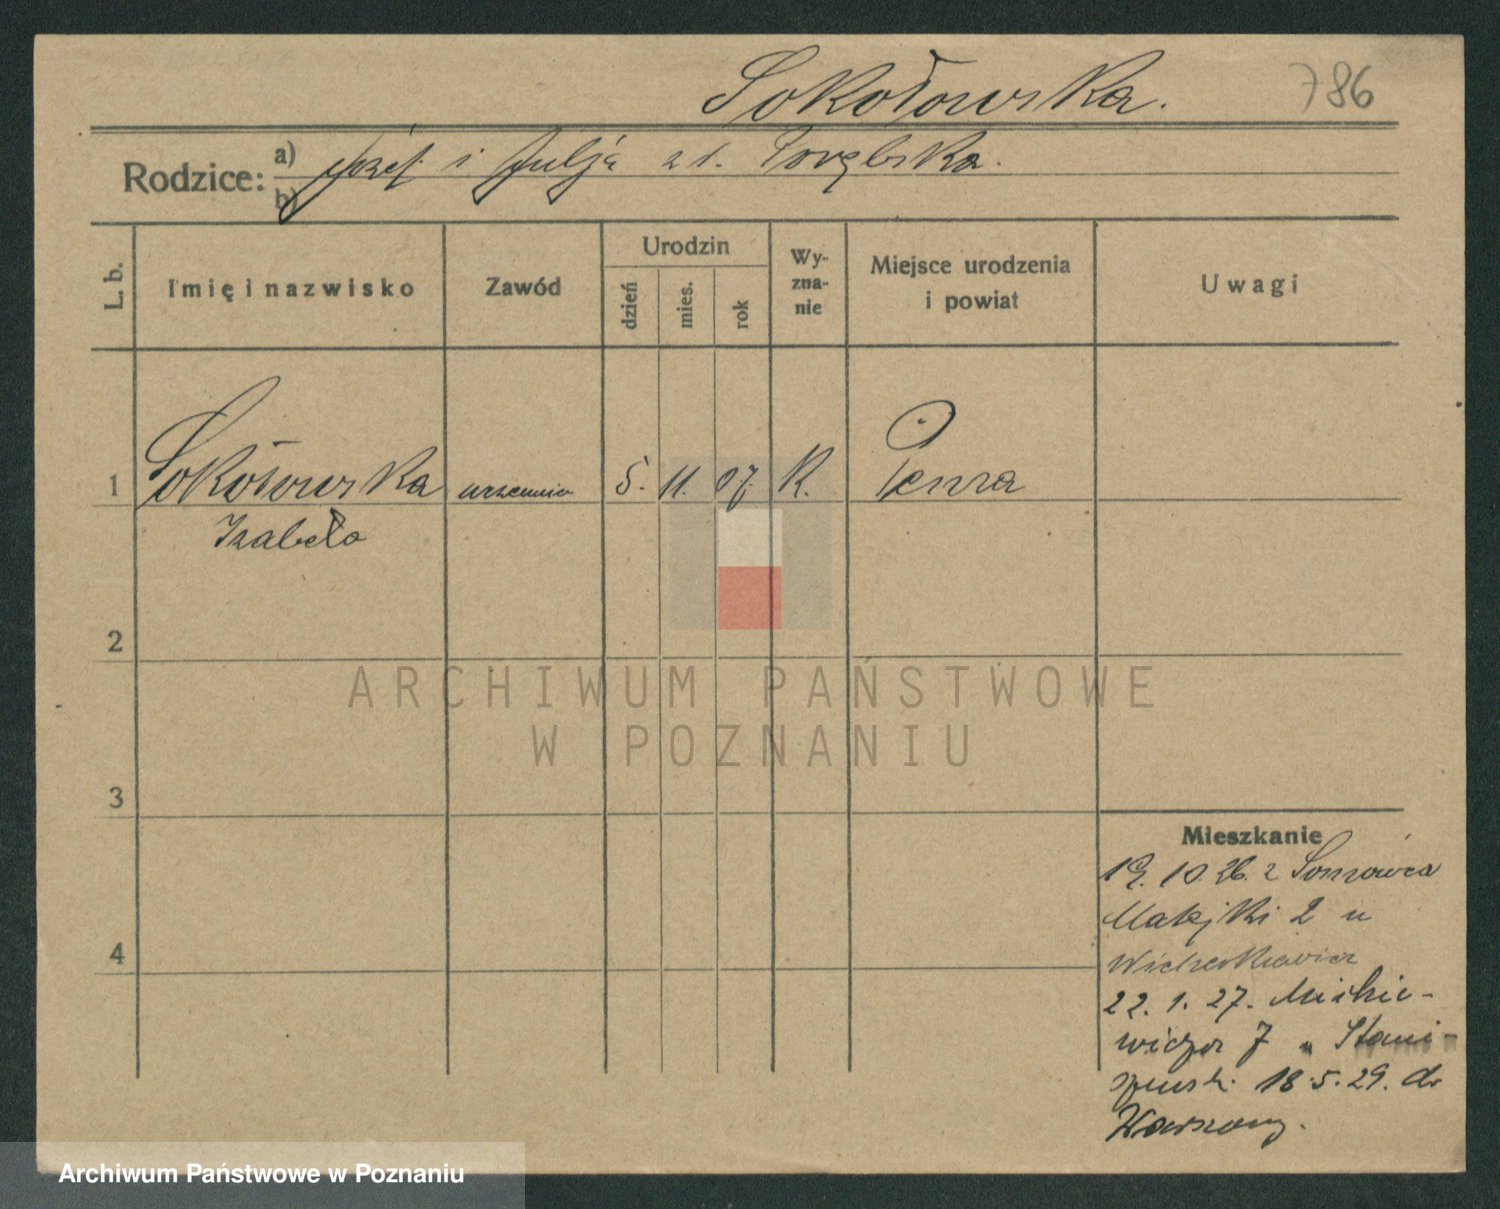 Sokołowska.
786
Rodzice: a) Józef i Julja z d. Porębska.
b)
L. b.
Imię i nazwisko
Zawód
Urodzin
dzień
mies.
rok
Wy-
zna-
nie
Miejsce urodzenia
i powiat
Uwagi
1 Sokołowska uczennica 5. 11. 07. K. Penza
Izabela
2
3
4
Mieszkanie
19. 10. 26. z Sosnowca
Matejki 2 u
22. 1. 27. Mickie-
wicza 7 u Stani-
18.5.29. do
Warszawy.
ARCHIWUM PAŃSTWOWE
W POZNANIU
Archiwum Państwowe w Poznaniu